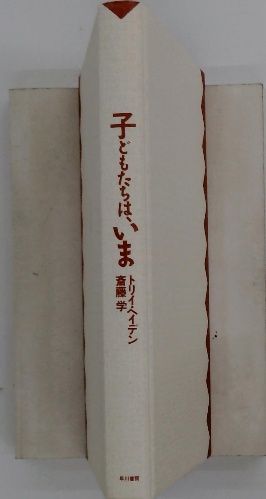 子どもたちは、いま
トリイ・ヘイデン
斎藤 学
早川書房